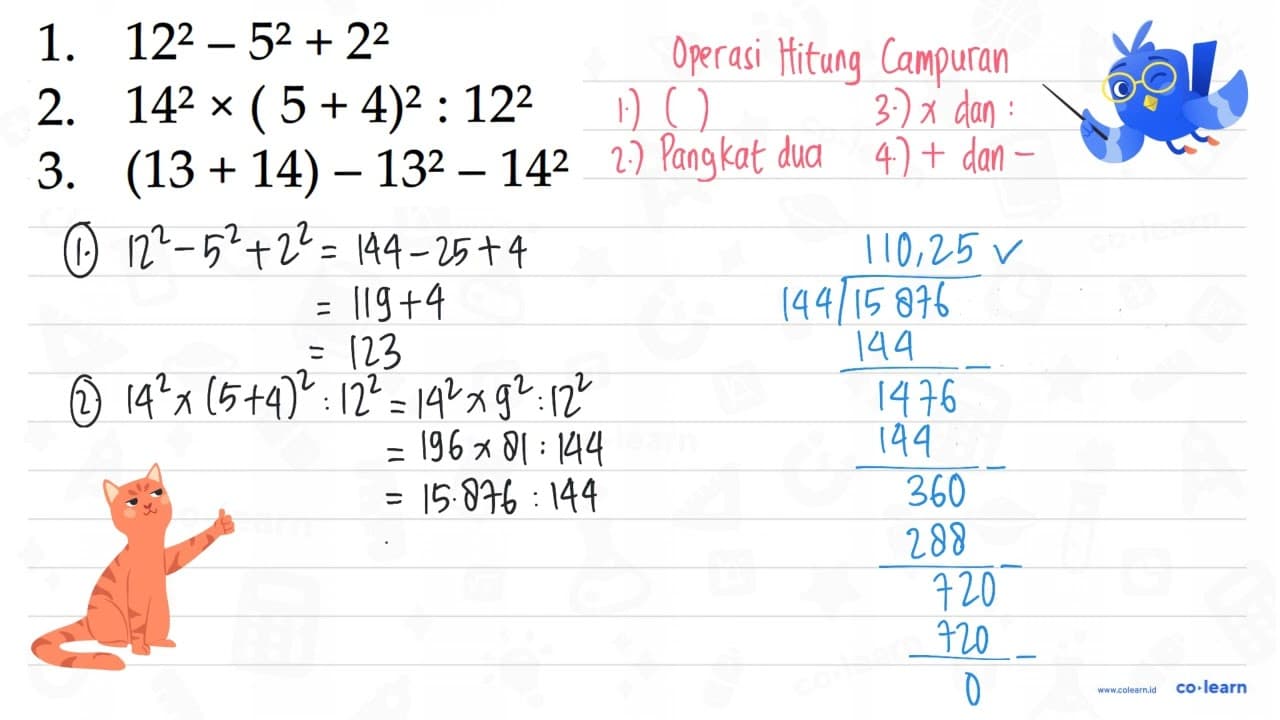 1. 12² – 5² + 2²
2. 14² × ( 5 + 4)² : 12²
3. (13 + 14) – 13² – 14²
Operasi Hitung Campuran
1.) ( )
3.) x dan :
2.) Pangkat dua
4.) + dan -
1. 12² - 5² + 2² = 144 - 25 + 4
= 119 + 4
= 123
2. 14² x (5+4)² : 12² = 14² x 9² : 12²
= 196 x 81 : 144
= 15.876 : 144
110,25 ✓
144 15 876
144 -
1476
144 -
360
288 -
720
720 -
0
www.colearn.id co·learn